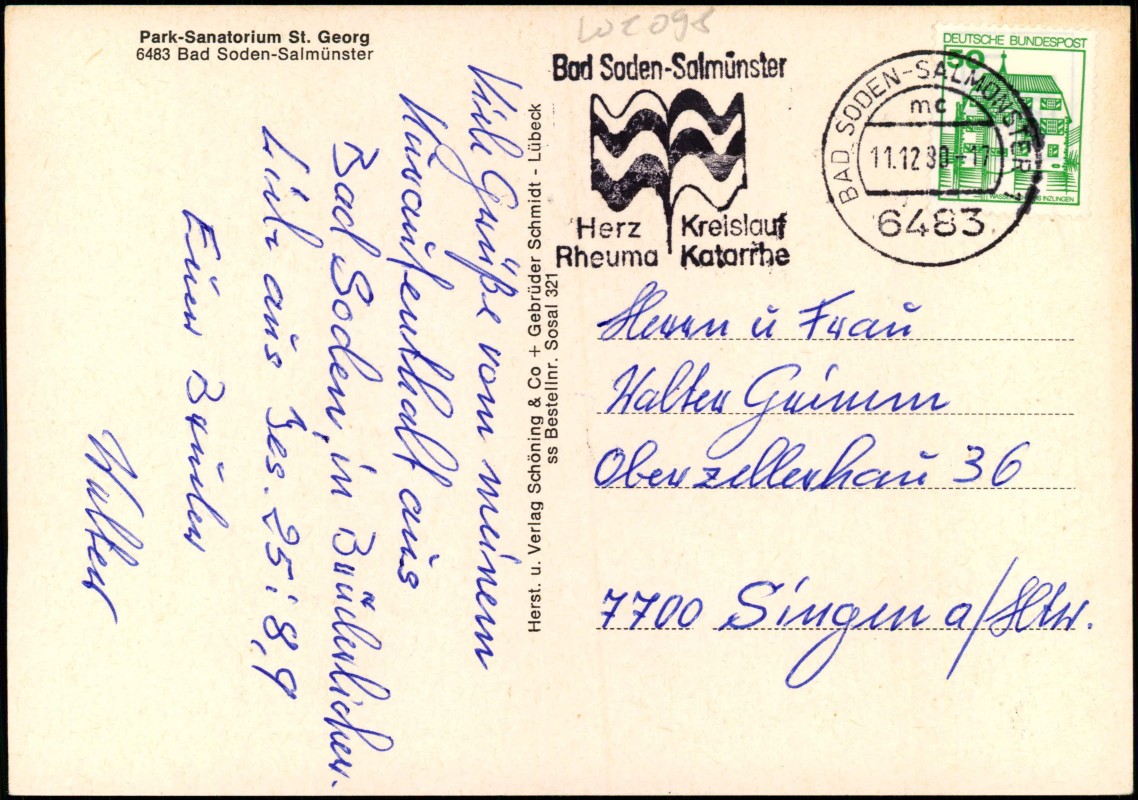 Park-Sanatorium St. Georg
6483 Bad Soden-Salmünster
Viele Grüße vom meinem
Kuraufenthalt aus
Bad Soden, in Brüderlicher
Liebe aus Jes. 25: 8,9
Euer Bruder
Walter
Herst. u. Verlag Schöning & Co + Gebrüder Schmidt - Lübeck
ss Bestellnr. Sosal 321
Bad Soden-Salmünster
Herz Kreislauf
Rheuma Katarrhe
BAD SODEN-SALMÜNSTER 1
mc
11.12.80-17
6483
DEUTSCHE BUNDESPOST
50
INZLINGEN
Herrn u Frau
Walter Grimm
Oberzellerhau 36
7700 Singen a/Htw.